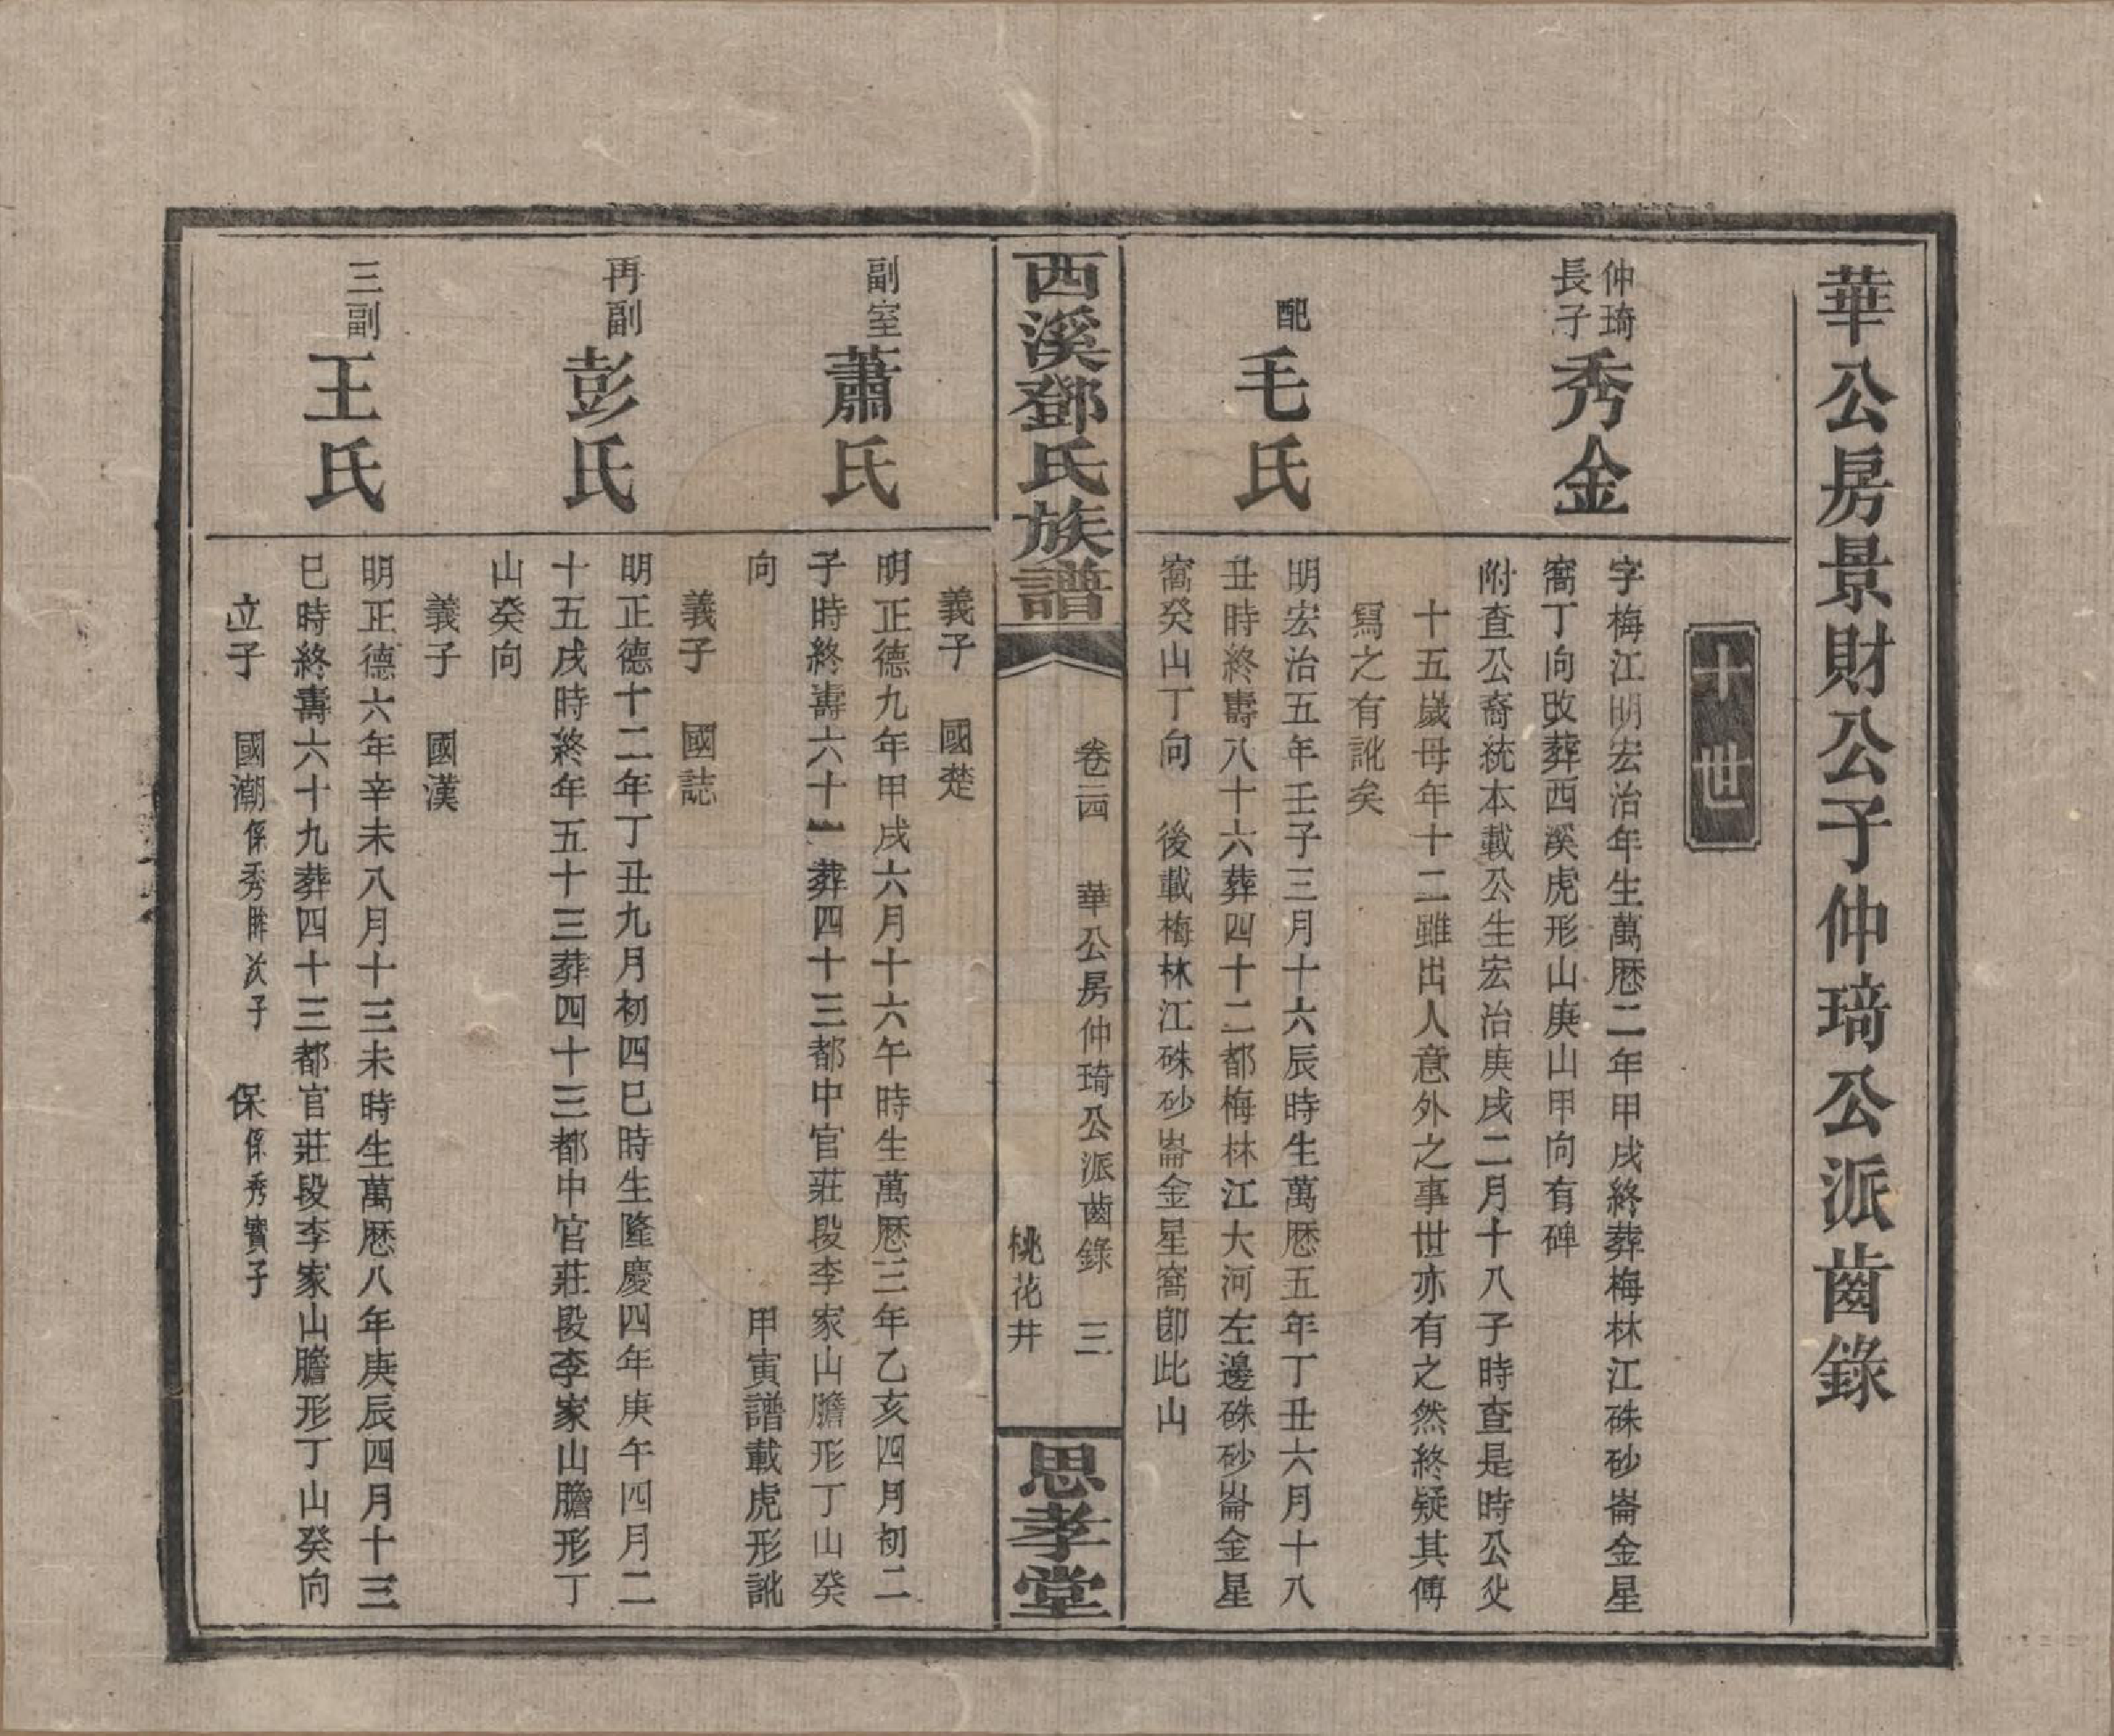 華公房景財公子仲琦公派齒錄
十世
仲琦
長子
秀金
字梅江明宏治年生萬厯二年甲戌終葬梅林江硃砂崙金星
窩丁向改葬西溪虎形山庚山甲向有碑
附查公裔統本載公生宏治庚戌二月十八子時查是時公父
十五歲母年十二雖出人意外之事世亦有之然終疑其傳
寫之有訛矣
配
毛氏
明宏治五年壬子三月十六辰時生萬厯五年丁丑六月十八
丑時終壽八十六葬四十二都梅林江大河左邊硃砂崙金星
窩癸山丁向 後載梅林江硃砂崙金星窩卽此山
西溪鄧氏族譜
卷二四 華公房仲琦公派齒錄 三
桃花井
思孝堂
義子 國楚
副室
蕭氏
明正德九年甲戌六月十六午時生萬厯三年乙亥四月初二
子時終壽六十二葬四十三都中官莊段李家山膽形丁山癸
向 甲寅譜載虎形訛
義子 國誌
再副
彭氏
明正德十二年丁丑九月初四巳時生隆慶四年庚午四月二
十五戌時終年五十三葬四十三都中官莊段李家山膽形丁
山癸向
義子 國漢
三副
王氏
明正德六年辛未八月十三未時生萬厯八年庚辰四月十三
巳時終壽六十九葬四十三都官莊段李家山膽形丁山癸向
立子 國潮係秀次子 保係秀實子